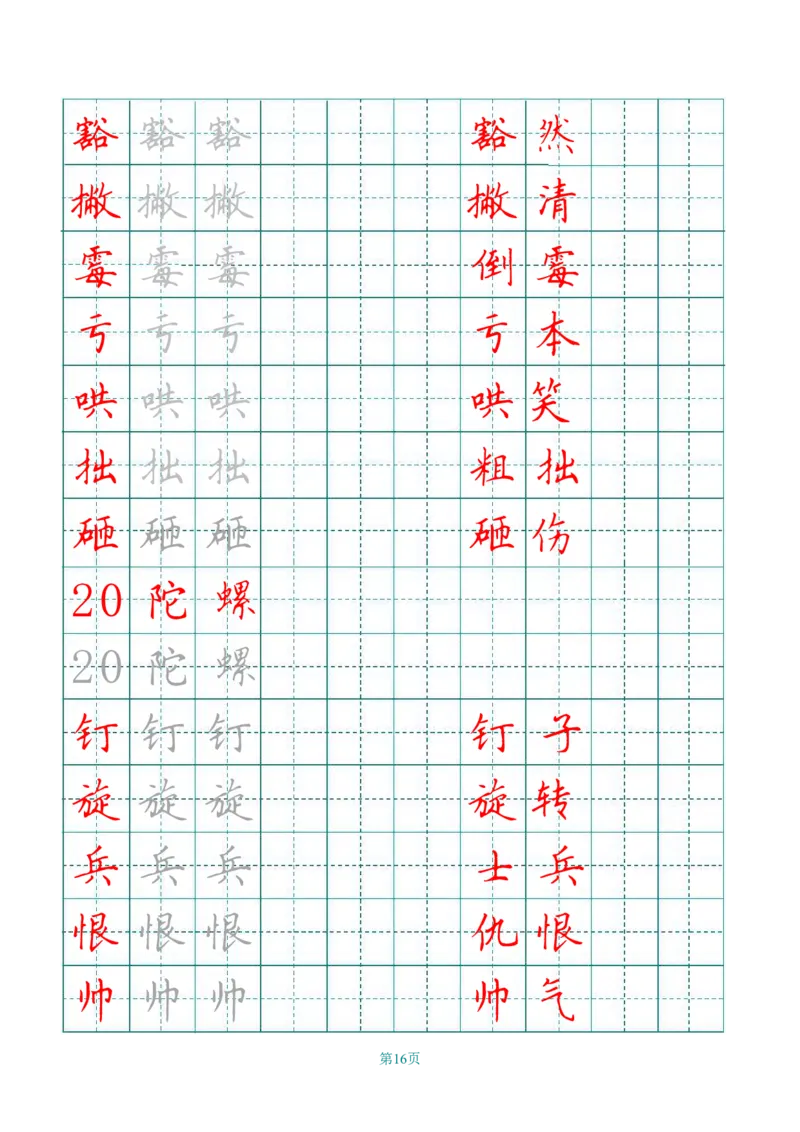 豁 豁 豁 豁 然
撇 撇 撇 撇 清
霉 霉 霉 倒 霉
亏 亏 亏 亏 本
哄 哄 哄 哄 笑
拙 拙 拙 粗 拙
砸 砸 砸 砸 伤
20 陀 螺
20 陀 螺
钉 钉 钉 钉 子
旋 旋 旋 旋 转
兵 兵 兵 士 兵
恨 恨 恨 仇 恨
帅 帅 帅 帅 气
第16页